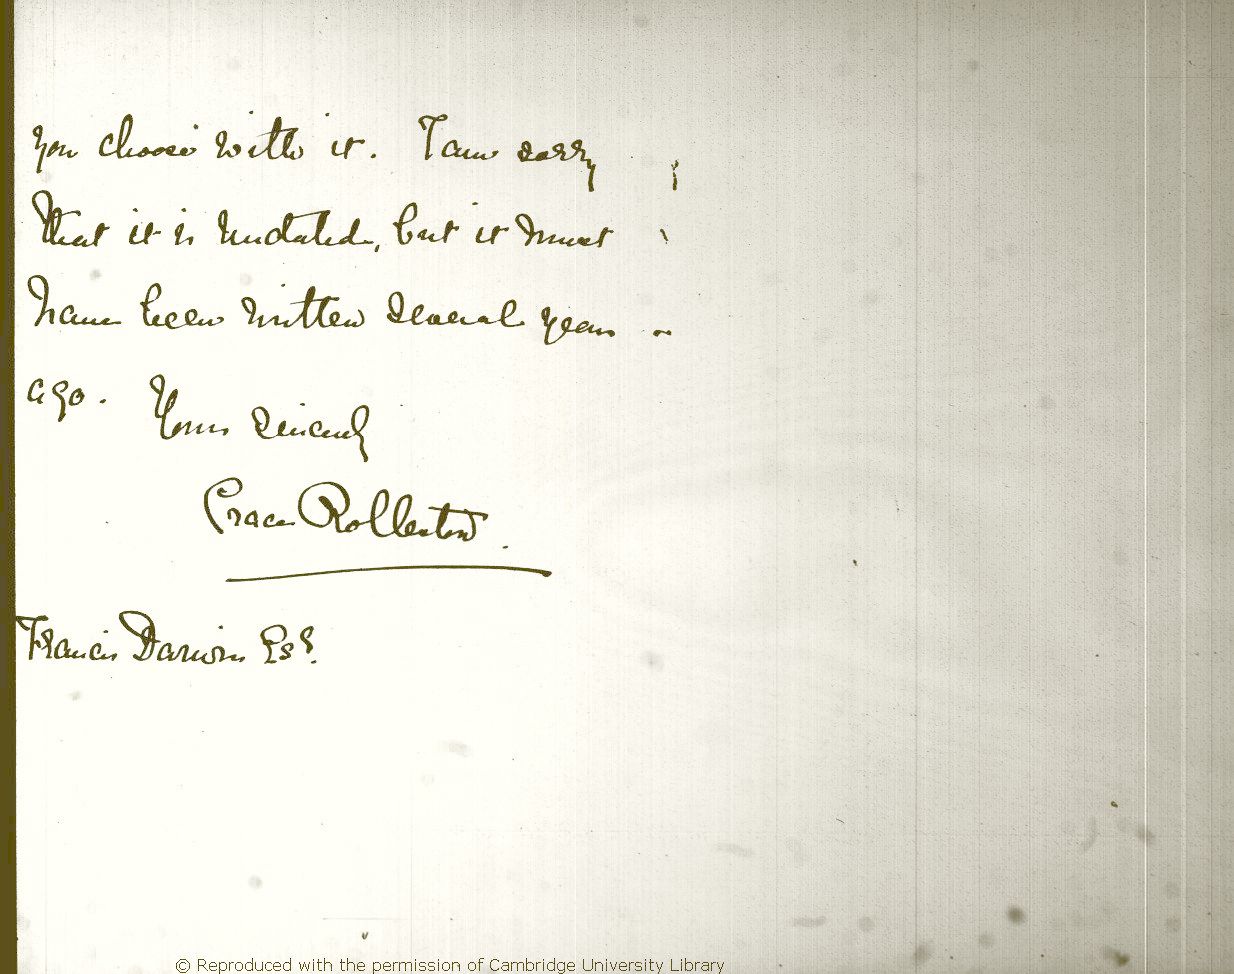 you choose with it. I am sorry
that it is undated, but it must
have been written several years
ago. Yours sincerely
Grace Rolleston.
Francis Darwin Esq.
© Reproduced with the permission of Cambridge University Library